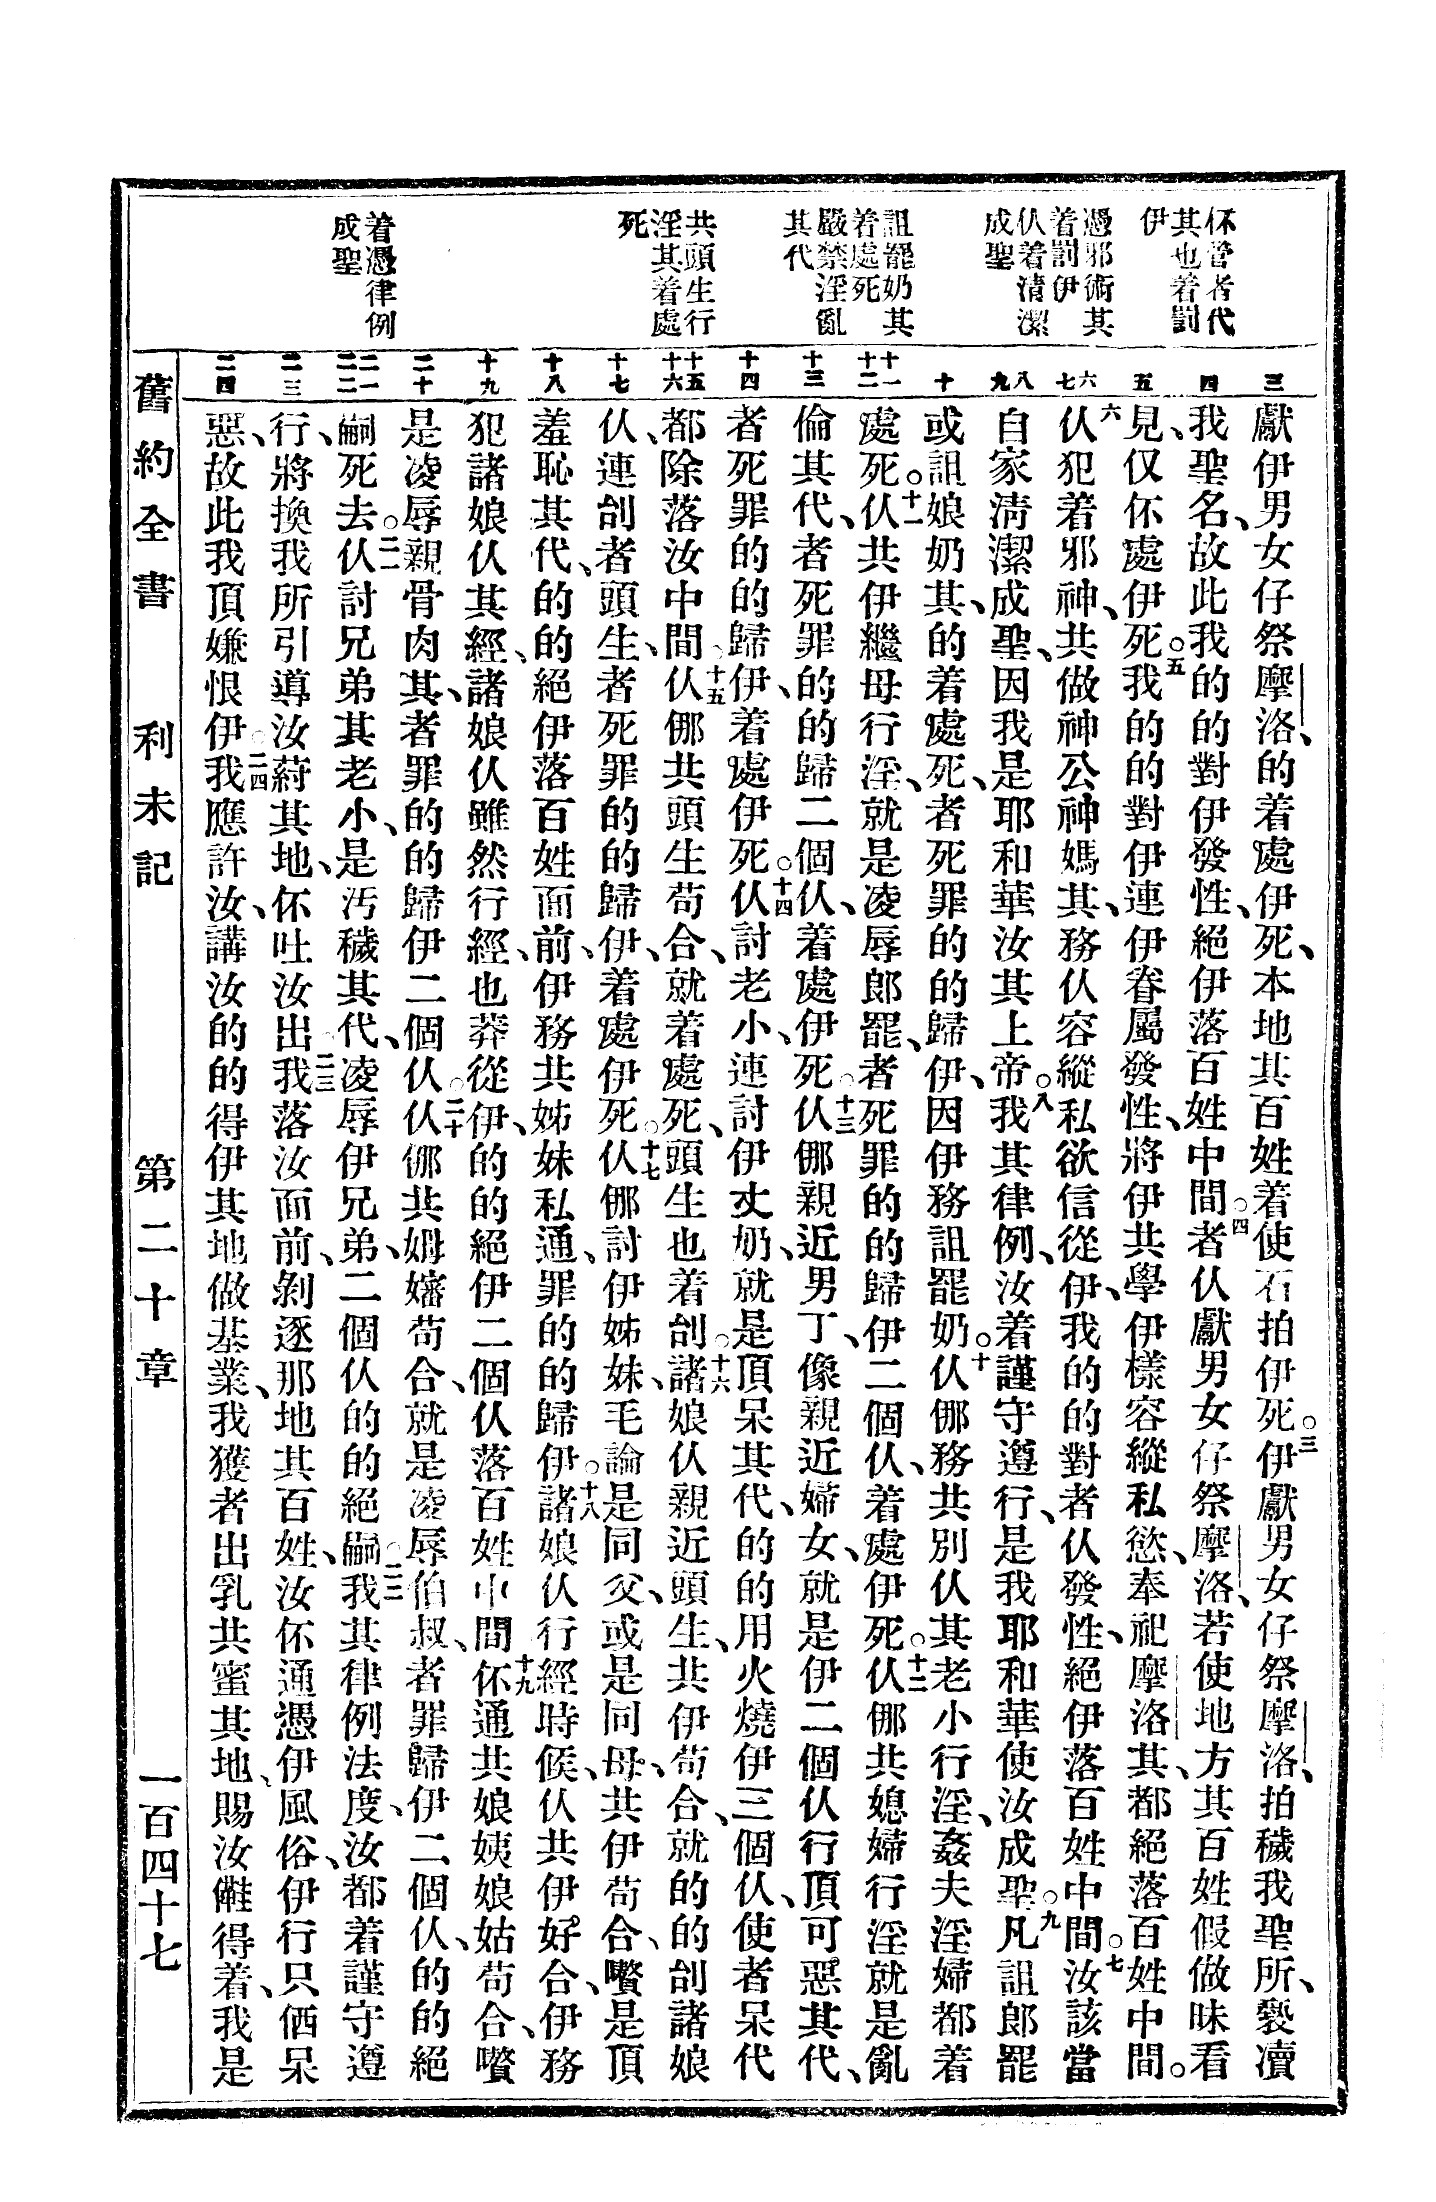 伓管者代
其也着罰
伊
憑邪術其
着罰伊
仈着清潔
成聖
詛罷奶其
着處死
嚴禁淫亂
其代
共頭生行
淫其着處
死
着憑律例
成聖
三
四
五
六
七
八
九
十
十一
十二
十三
十四
十五
十六
十七
十八
十九
二十
二一
二二
二三
二四
獻伊男女仔祭摩洛、的着處伊死、本地其百姓着使石拍伊死。三伊獻男女仔祭摩洛、拍穢我聖所、褻瀆
我聖名、故此我的的對伊發性、絕伊落百姓中間。四者仈獻男女仔祭摩洛、若使地方其百姓假做昧看
見、仅伓處伊死。五我的的對伊連伊眷屬發性、將伊共學伊樣容縱私慾、奉祀摩洛其、都絕落百姓中間。
六仈犯着邪神、共做神公神媽其、務仈容縱私欲信從伊、我的的對者仈發性、絕伊落百姓中間。七汝該當
自家淸潔成聖、因我是耶和華汝其上帝。八我其律例、汝着謹守遵行、是我耶和華使汝成聖。九凡詛郎罷
或詛娘奶其、的着處死、者死罪的的歸伊、因伊務詛罷奶。十仈㑚務共別仈其老小行淫、姦夫淫婦都着
處死。十一仈共伊繼母行淫、就是凌辱郎罷、者死罪的的歸伊二個仈、着處伊死。十二仈㑚共媳婦行淫就是亂
倫其代、者死罪的的歸二個仈、着處伊死。十三仈㑚親近男丁、像親近婦女、就是伊二個仈行頂可惡其代、
者死罪的的歸伊、着處伊死。十四仈討老小、連討伊丈奶、就是頂呆其代、的的用火燒伊三個仈、使者呆代
都除落汝中間。十五仈㑚共頭生苟合、就着處死、頭生也着刣。十六諸娘仈親近頭生、共伊苟合、就的的刣諸娘
仈、連刣者頭生、者死罪的的歸伊、着處伊死。十七仈㑚討伊姊妹、毛論是同父、或是同母、共伊苟合、嚽是頂
羞恥其代、的的絕伊落百姓面前、伊務共姊妹私通、罪的的歸伊。十八諸娘仈行經時候、仈共伊好合、伊務
犯諸娘仈其經、諸娘仈雖然行經、也莽從伊、的的絕伊二個仈落百姓中間。十九伓通共娘姨娘姑苟合、嚽
是凌辱親骨肉其、者罪的的歸伊二個仈。二十仈㑚共姆嬸苟合、就是凌辱伯叔、者罪歸伊二個仈、的的絕
嗣死去。二一仈討兄弟其老小、是汚穢其代、凌辱伊兄弟、二個仈的的絕嗣。二二我其律例法度、汝都着謹守遵
行、將換我所引導汝葤其地、伓吐汝出。二三我落汝面前、剝逐那地其百姓、汝伓通憑伊風俗、伊行只価呆
惡、故此我頂嫌恨伊。二四我應許汝、講汝的的得伊其地做基業、我獲者出乳共蜜其地、賜汝儺得着、我是
舊約全書　利未記　第二十章　一百四十七